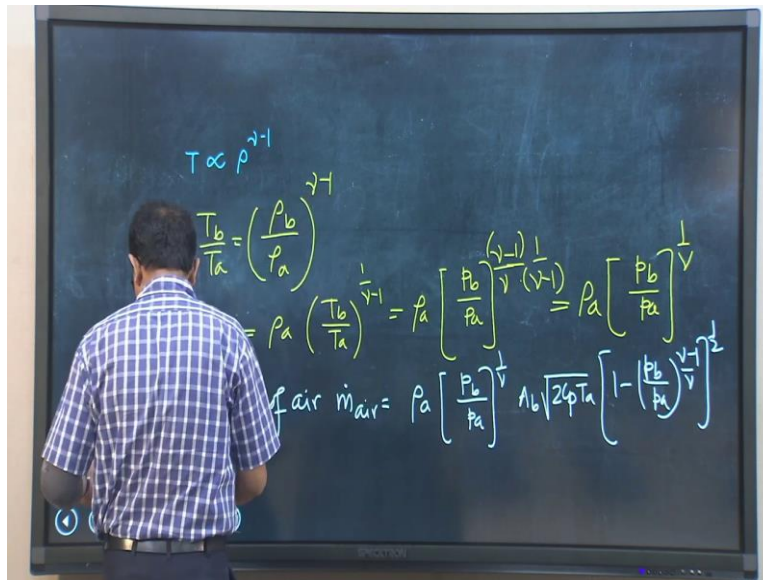 T ∝ ρ^(γ-1)
T_b/T_a = (ρ_b/ρ_a)^(γ-1)
= ρ_a (T_b/T_a)^(1/(γ-1)) = ρ_a [p_b/p_a]^((γ-1)/γ · 1/(γ-1)) = ρ_a [p_b/p_a]^(1/γ)
of air ṁ_air = ρ_a [p_b/p_a]^(1/γ) A_b √(2C_pT_a) [1-(p_b/p_a)^((γ-1)/γ)]^(1/2)
SPECKTRON